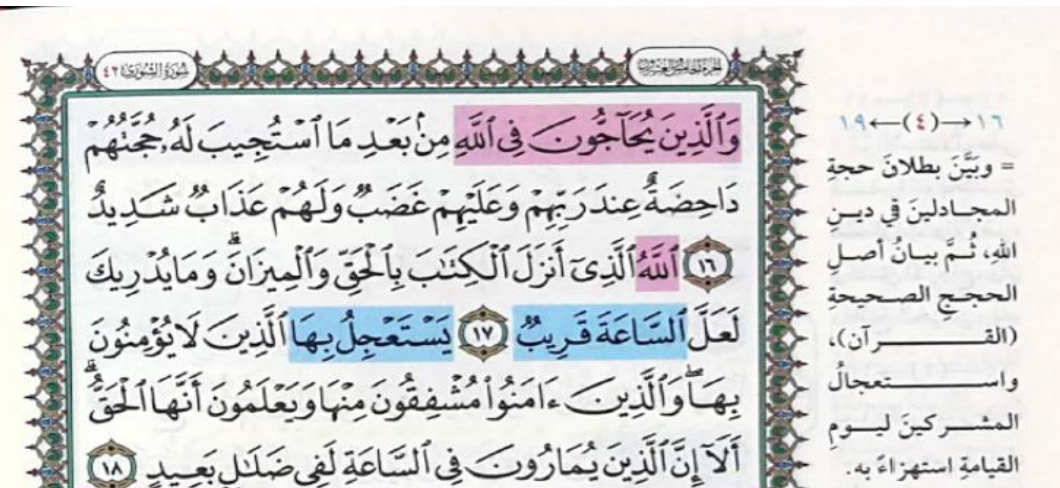 الجزء الخامس والعشرون
سورة الشورى ٤٢
وَٱلَّذِينَ يُحَآجُّونَ فِى ٱللَّهِ مِنۢ بَعۡدِ مَا ٱسۡتُجِيبَ لَهُۥ حُجَّتُهُمۡ
دَاحِضَةٌ عِندَ رَبِّهِمۡ وَعَلَيۡهِمۡ غَضَبٞ وَلَهُمۡ عَذَابٞ شَدِيدٌ
١٦ ٱللَّهُ ٱلَّذِىٓ أَنزَلَ ٱلۡكِتَٰبَ بِٱلۡحَقِّ وَٱلۡمِيزَانَۗ وَمَا يُدۡرِيكَ
لَعَلَّ ٱلسَّاعَةَ قَرِيبٞ ١٧ يَسۡتَعۡجِلُ بِهَا ٱلَّذِينَ لَا يُؤۡمِنُونَ
بِهَاۖ وَٱلَّذِينَ ءَامَنُواْ مُشۡفِقُونَ مِنۡهَا وَيَعۡلَمُونَ أَنَّهَا ٱلۡحَقُّۗ
أَلَآ إِنَّ ٱلَّذِينَ يُمَارُونَ فِى ٱلسَّاعَةِ لَفِى ضَلَٰلِۭ بَعِيدٍ ١٨
١٦→(٤)←١٩
= وبَيَّنَ بطلانَ حجةِ
المجادلينَ في دينِ
اللهِ، ثُمَّ بيانُ أصلِ
الحججِ الصحيحةِ
(القرآن)،
واستعجالُ
المشركينَ ليومِ
القيامةِ استهزاءً به.